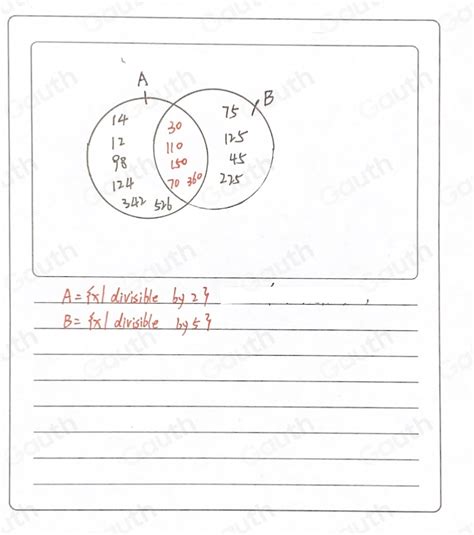 A
B
14
12
98
124
342 526
30
110
150
70 360
75
125
45
225
A = {x| divisible by 2}
B = {x| divisible by 5}
Gauth